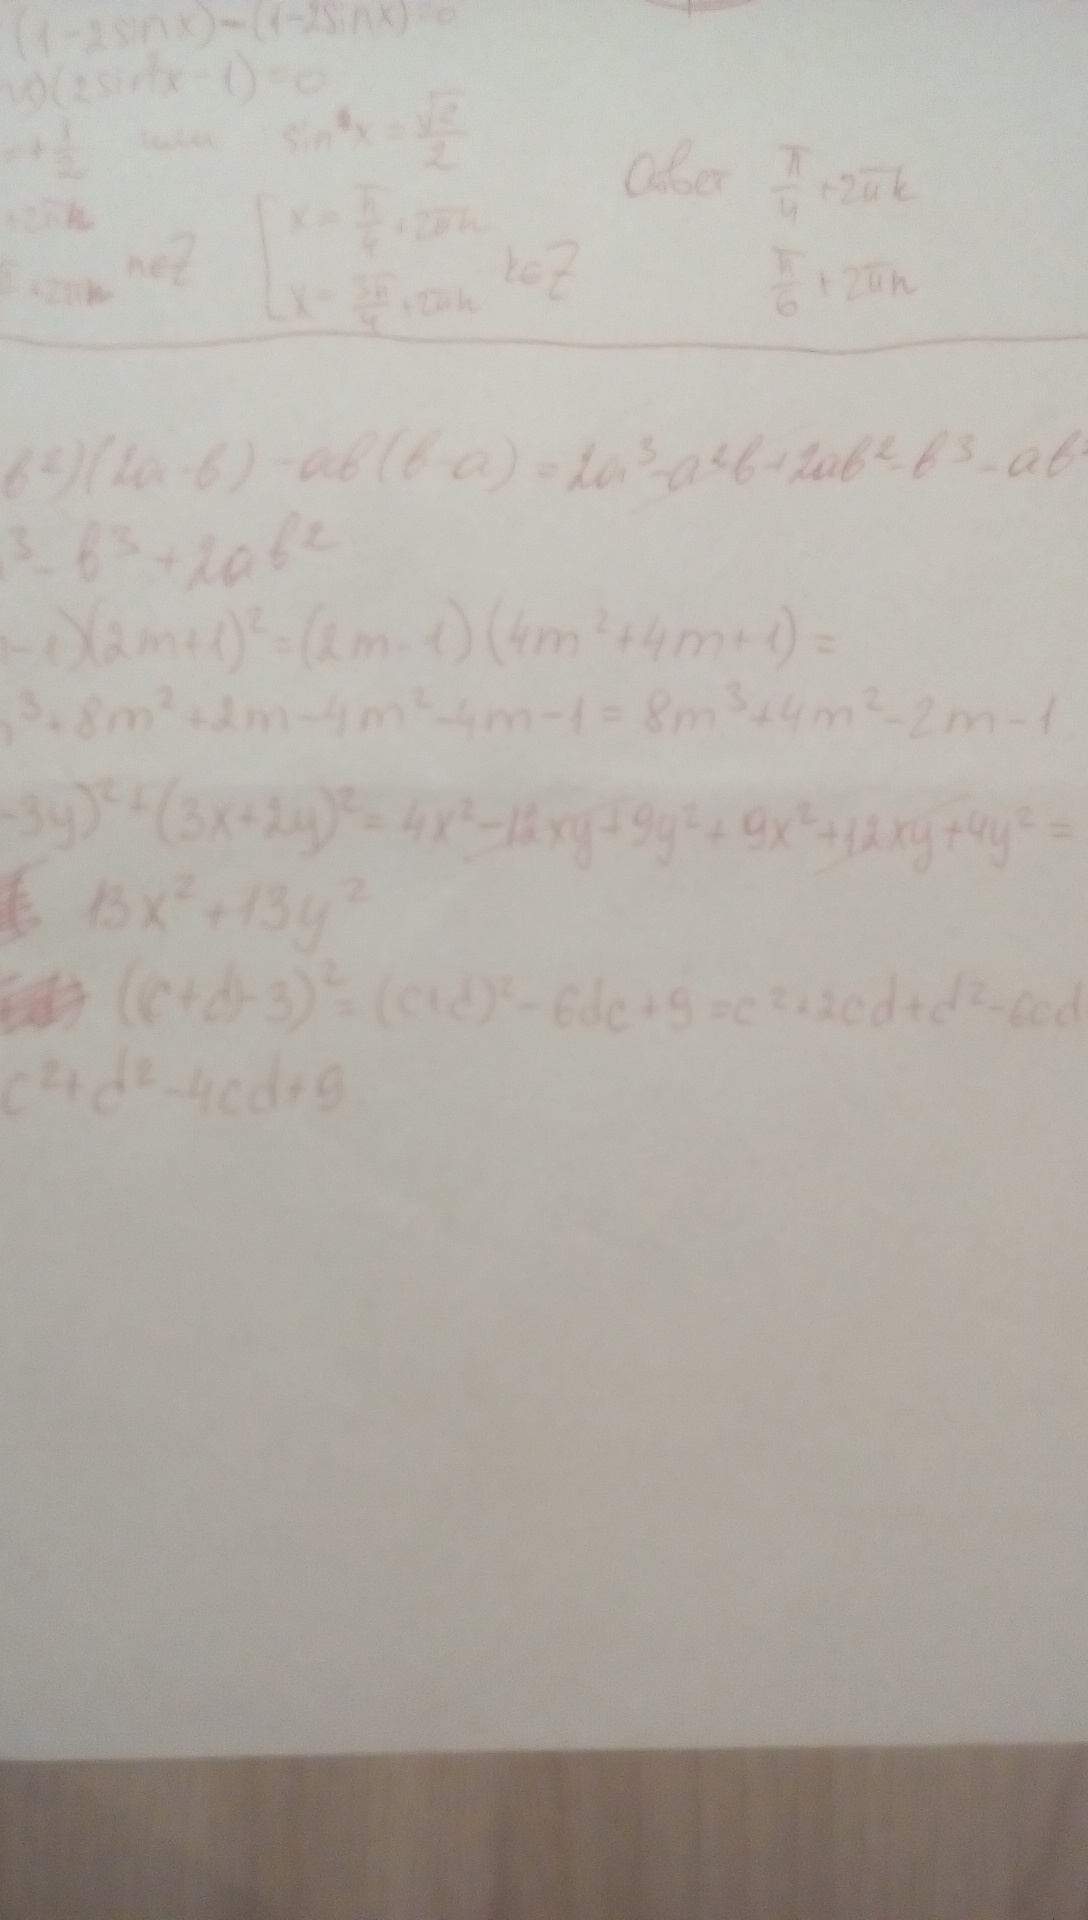 (1-2sinx)-(1-2sinx)=0
)(2sin²x-1)=0
=+1/2 или sin²x=√2/2
Ответ π/4+2πk
+2πn
[x=π/4+2πn
π/6+2πn
+2πn n∈Z
x=3π/4+2πn k∈Z
b²)(2a-b)-ab(b-a)=2a³-a²b+2ab²-b³-ab
³-b³+2ab²
-1)(2m+1)²=(2m-1)(4m²+4m+1)=
³+8m²+2m-4m²-4m-1=8m³+4m²-2m-1
-3y)²+(3x+2y)²=4x²-12xy+9y²+9x²+12xy+4y²=
13x²+13y²
((c+d)-3)²=(c+d)²-6dc+9=c²+2cd+d²-6cd
c²+d²-4cd+9